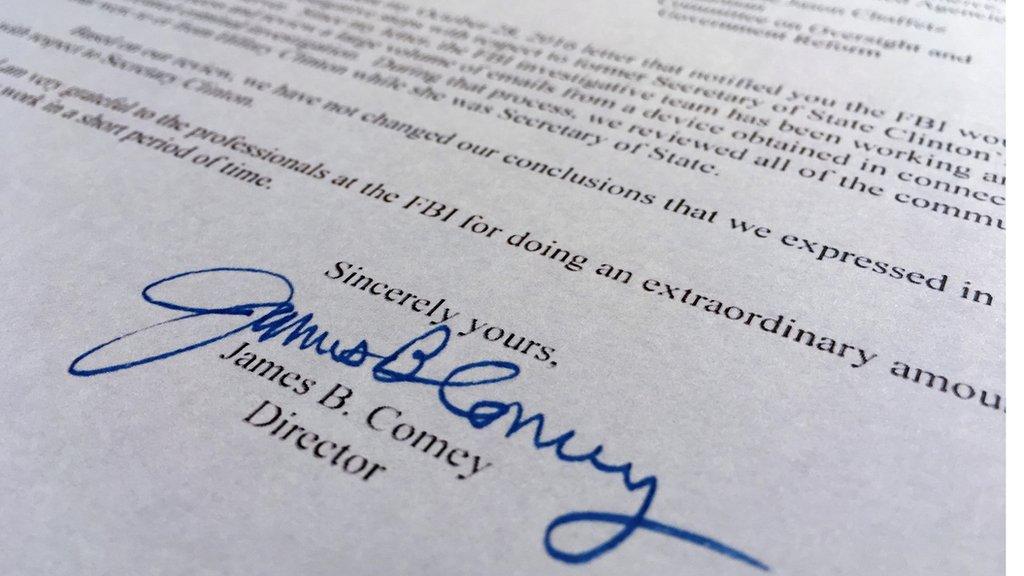 Chaffetz
Committee on Oversight and
Government Reform
October 28, 2016 letter that notified you the FBI wou
steps with respect to former Secretary of State Clinton'
my letter, the FBI investigative team has been working
a large volume of emails from a device obtained in connec
investigation. During that process, we reviewed all of the commu
or from Hillary Clinton while she was Secretary of State.
Based on our review, we have not changed our conclusions that we expressed in
with respect to Secretary Clinton.
am very grateful to the professionals at the FBI for doing an extraordinary amou
work in a short period of time.
Sincerely yours,
James B Comey
James B. Comey
Director